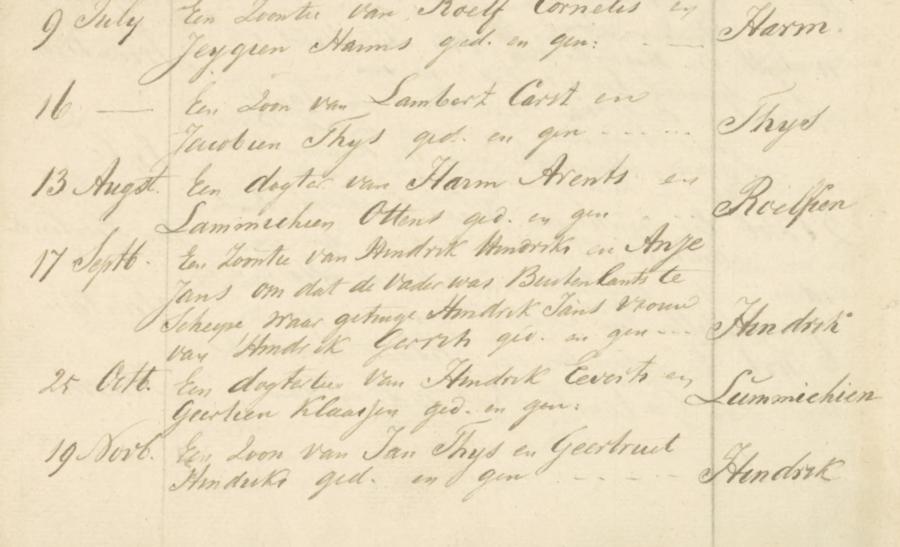 9 July Een Zoontie van Roelf Cornelis en
Jeygien Harms ged. en gen: - — Harm.
16 — Een Zoon van Lambert Carst en
Jacobien Thys ged. en gen ----- Thys
13 Augst. Een dogter van Harm Arents en
Lammichien Ottens ged. en gen - - - Roelfien
17 Septb. Een Zoontie van Hendrik Hendriks en Anje
Jans om dat de Vader was Buitenlants te
Scheepe waar getuige Hendrik Jans vrouw
van Hendrik Gerrits ged. en gen --- Hendrik
25 Octb. Een dogtertien van Hendrik Everts en
Geertien Klaassen ged. en gen: Lummichien
19 Novb. Een Zoon van Jan Thys en Geertruit
Hendriks ged. en gen - - - - - Hendrik